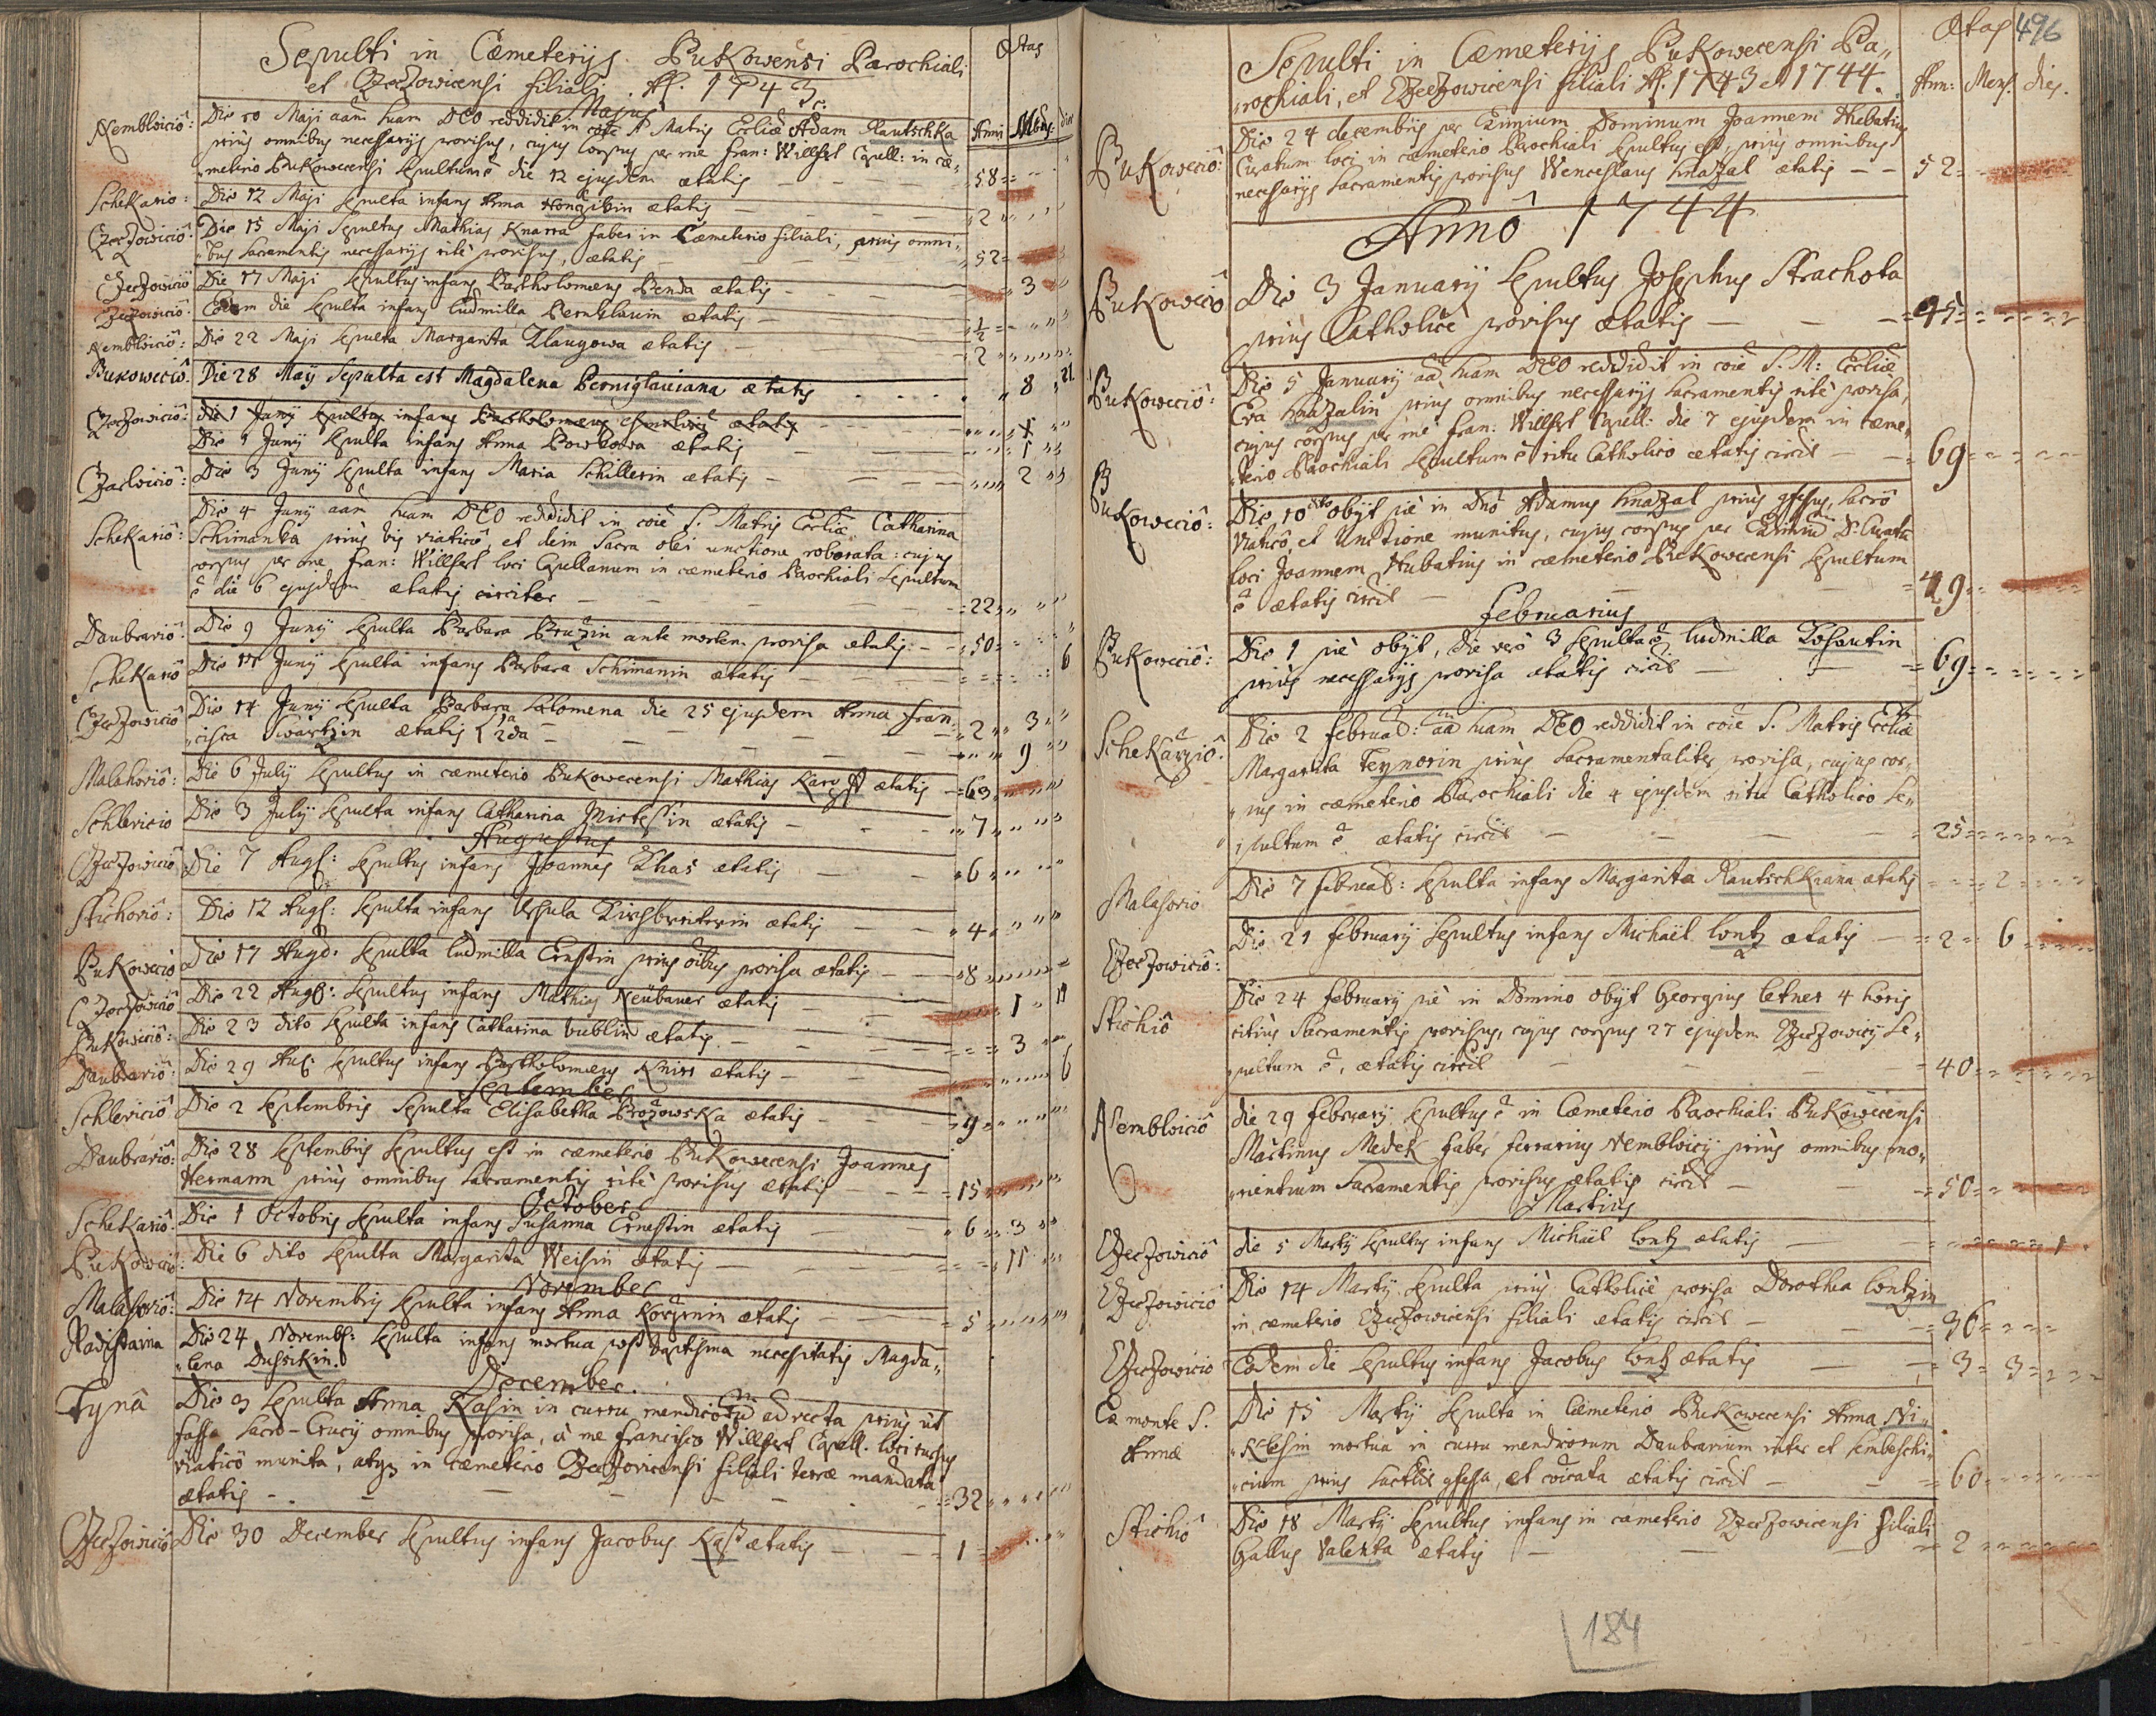 Sepulti in Cæmeterijs Bukowensi Parochiali
et Czeczowicensi filiali A. 1743
Ætas
Majus
Anni Mens: dies
Nemblovicio: Die 10 Maji aam suam DEO reddidit in coïe S. Matris Ecliæ Adam Rautschka
prius omnibus necessarijs provisus, cujus corpus per me Fran: Willfert Capell: in cæ-
meterio Bukowecensi sepultum ê die 12 ejusdem ætatis 58
Schekario: Die 12 Maji sepulta infans Anna Honzikin ætatis 2
Czeczowicio: Die 15 Maji Sepultus Mathias Knarra faber in Cæmeterio filiali, prius omni-
bus Sacramentis necessarijs ritè provisus, ætatis 52
Czeczowicio Die 17 Maji Sepultus infans Bartholomæus Benda ætatis 3
Czeczowicio: Eodem die sepulta infans Ludmilla Bernklauin ætatis ½
Nemblovicio: Die 22 Maji sepulta Margarita Klaugowa ætatis 2
Bukowecio. Die 28 Maÿ Sepulta est Magdalena Berniglaviana ætatis 8 21
Czeczowicio: die 1 Junÿ sepultus infans Bartholomæus ætatis
Die 1 Junÿ sepulta infans Anna Bowbowa ætatis 1
Czarlovicio: Die 3 Junÿ sepulta infans Maria Schillerin ætatis 2
Schekario: Die 4 Junÿ aam suam DEO reddidit in coïe S. Matris Ecliæ Catharina
Schimanka prius bis viatico, et dein Sacra olei unctione roborata: cujus
corpus per me Fran: Willfert loci Capellanum in cæmeterio Parochiali sepultum
ê die 6 ejusdem ætatis circiter 22
Daubravio: Die 9 Junÿ sepulta Barbara Bruzin ante mortem provisa ætatis 50
Schekario Die 11 Junÿ sepulta infans Barbara Schimanin ætatis 6
Czeczowicio Die 14 Junÿ sepulta Barbara Salomena die 25 ejusdem Anna Fran- 2 3
cisca Swartzin ætatis 1a 2da 9
Malahovio: Die 6 Julÿ sepultus in cæmeterio Bukowecensi Mathias ætatis 63
Schlevicio Die 3 Julÿ sepulta infans Catharina Mistessin ætatis 7
Augustus
Czeczowicio Die 7 Aug: sepultus infans Joannes Khas ætatis 6
Stichovio: Die 12 Aug: sepulta infans Ursula Kirchbreiterin ætatis 4
Bukowecio Die 17 Aug: sepulta Ludmilla Ernstin prius oïbus provisa ætatis 8
Czeczowicio Die 22 Aug: sepultus infans Mathias Neübauer ætatis 1 11
Bukowecio: Die 23 dito sepulta infans Catharina Bublin ætatis 3
Daubravio: Die 29 Aug: sepultus infans Bartholomæus Kniss ætatis 6
September
Schlevicio Die 2 Septembris Sepulta Elisabetha Brozowska ætatis 9
Daubravio: Die 28 Septembris Sepultus est in cæmeterio Bukowecensi Joannes
Hermann prius omnibus Sacramentis ritè provisus ætatis 15
October
Schekario: Die 1 Octobris sepulta infans Susanna Ernestin ætatis 6 3
Bukowecio: Die 6 dito sepulta Margarita Weisin ætatis 11
November
Malahovio: Die 14 Novembris sepulta infans Anna Korzinin ætatis 5
Radistaina Die 24 Novemb: sepulta infans mortua post baptisma necessitatis Magda-
lena Dussikin.
December.
Tynâ Die 3 sepulta Anna Kasin in curru mendicorū advecta prius ut
fassa Sacro-Crucij omnibus provisa, à me Francisco Willfert Capell. loci rursus
viatico munita, atq; in cæmeterio Czeczovicensi filiali terræ mandata
ætatis 32
Czeczowicio Die 30 December Sepultus infans Jacobus Kass ætatis 1
496
Sepulti in Cæmeterijs Bukowecensi Pa-
rochiali, et Czeczowicensi filiali A. 1743 et 1744.
Ætas
Ann: Mens. dies.
Bukowecio: Die 24 decembris per Eximium Dominum Joannem Hubatius
Curatum loci in cæmeterio Parochiali sepultus est, prius omnibus
necessarijs Sacramentis provisus Wenceslaus Hnazal ætatis 52
Annô 1744
Bukowecio Die 3 Januarij sepultus Josephus Strachota
prius Catholicè provisus ætatis 45
Bukowecio: Die 5 Januarij aā suam DEO reddidit in coïe S. M: Ecliæ
Eva Hnazalin prius omnibus necessarijs Sacramentis ritè provisa,
cujus corpus per me Fran: Willfert Capell: die 7 ejusdem in cæme-
terio Parochiali sepultum ê ritu Catholico ætatis circit 69
Bukowecio: Die 10 dito obijt piè in Dno Adamus Hnazal prius gfessus, sacro
Viatico, et Unctione munitus, cujus corpus per Eximiū D. Curatū
loci Joannem Hubatius in cæmeterio Bukowecensi sepultum
ê ætatis circit 49
Februarius
Bukowecio: Die 1 piè obijt, die vero 3 sepulta ê Ludmilla Kohoutin
prius necessarijs provisa ætatis circit 69
Schekarzio: Die 2 Februar: aā suam DEO reddidit in coïe S. Matris Ecliæ
Margarita Teynorin prius Sacramentaliter provisa, cujus cor-
pus in cæmeterio Parochiali die 4 ejusdem ritu Catholico Se-
pultum ê ætatis circit 25
Malahovio Die 7 Februar: sepulta infans Margarita Rautschkiana ætatis 2
Czeczowicio: Die 21 Februarij Sepultus infans Michaël Lontz ætatis 2 6
Stichio Die 24 Februarij piè in Domino obijt Georgius Letner 4 horis
citius Sacramentis provisus, cujus corpus 27 ejusdem Czeczowicij Se-
pultum ê, ætatis circit 40
Nemblovicio die 29 Februarij sepultus ê in Cæmeterio Parochiali Bukowecensi
Martinus Medek faber ferrarius Nemblovicij prius omnibus mo-
rientium Sacramentis provisus ætatis circit 50
Martius
Czeczowicio die 5 Martij sepultus infans Michaël Lontz ætatis 1
Czeczowicio Die 14 Martij sepulta prius Catholicè provisa Dorothea Lontzin
in cæmeterio Czeczowicensi filiali ætatis circit 36
Czeczowicio Eodem die sepultus infans Jacobus Lontz ætatis 3 3
Ex monte S.
Annæ
Die 15 Martij sepulta in Cæmeterio Bukowecensi Anna Ni-
klesin mortua in curru mendicorum Daubravium inter et Sembeschi-
cium prius gfessa, et ætatis circit 60
Stichio Die 18 Martij sepultus infans in cæmeterio Czeczowicensi filiali
Gallus Valenta ætatis 2
184